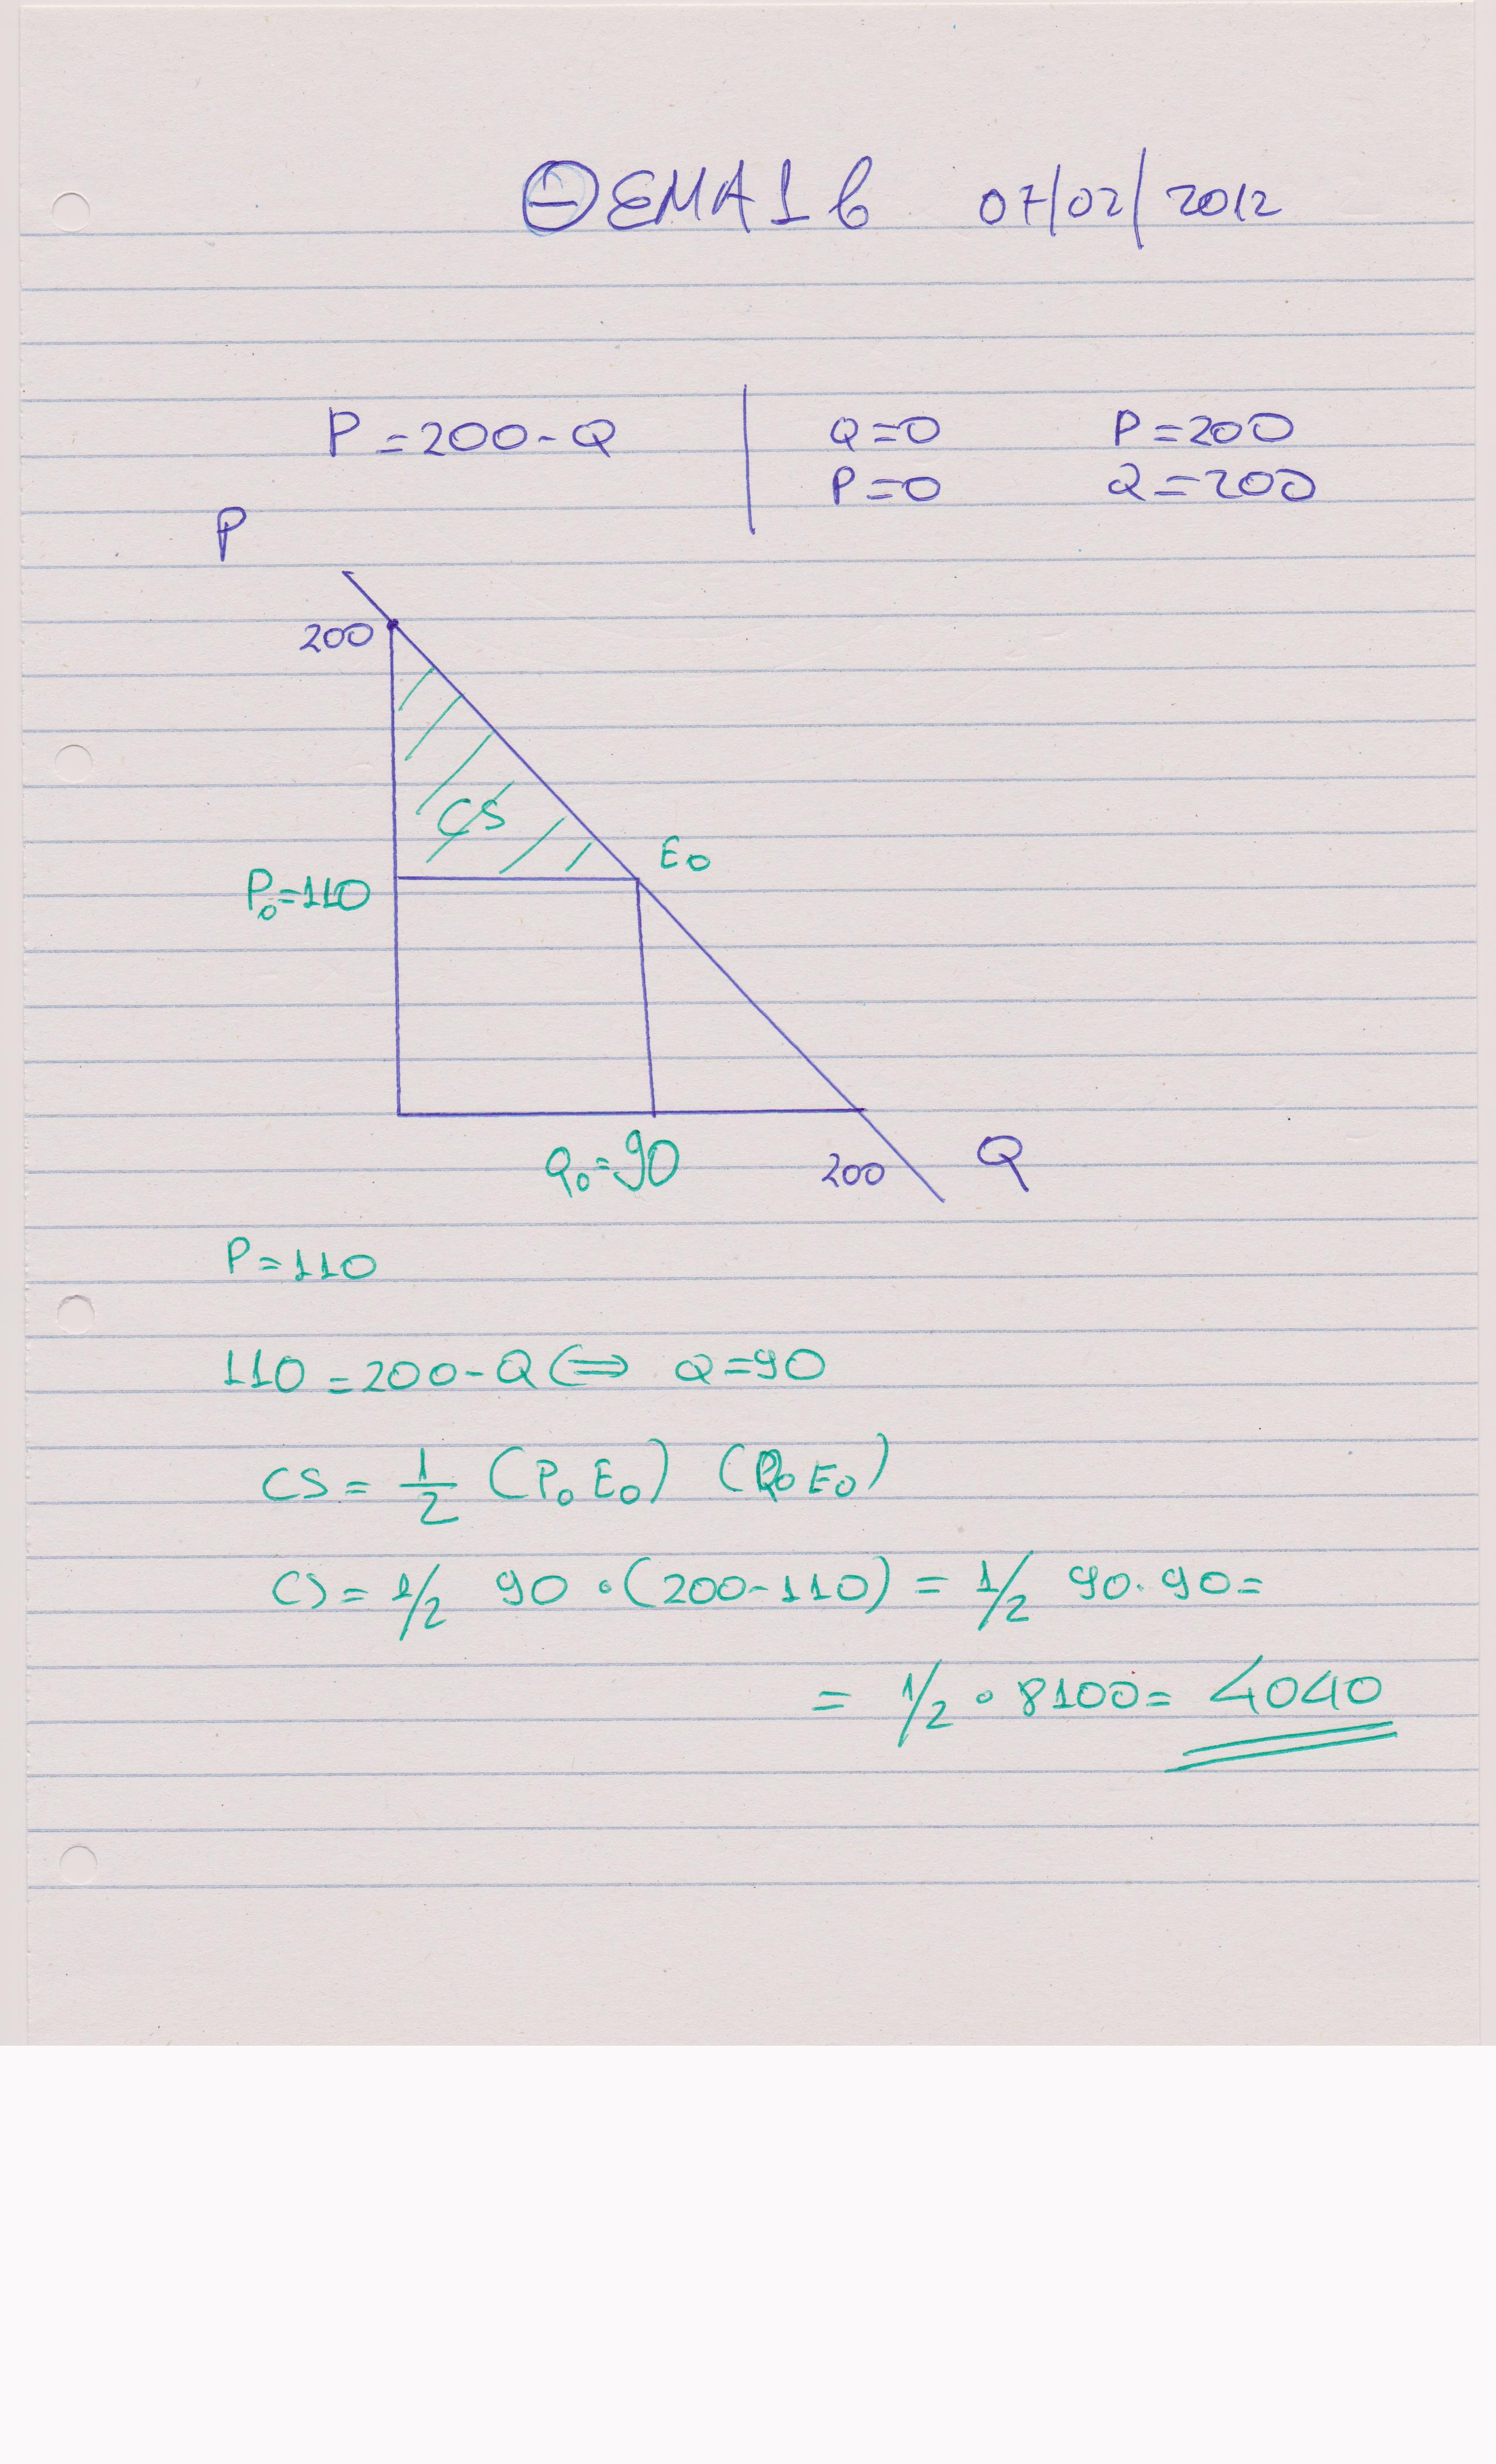 ΘΕΜΑ 1 б 07/02/2012
P = 200 - Q | Q = 0 P = 200
P = 0 Q = 200
P
200
CS
E₀
P₀ = 110
Q₀ = 90
200
Q
P = 110
110 = 200 - Q ⟺ Q = 90
CS = 1/2 (P₀ E₀) (P₀ E₀)
CS = 1/2 90 · (200 - 110) = 1/2 90 · 90 =
= 1/2 · 8100 = 4040